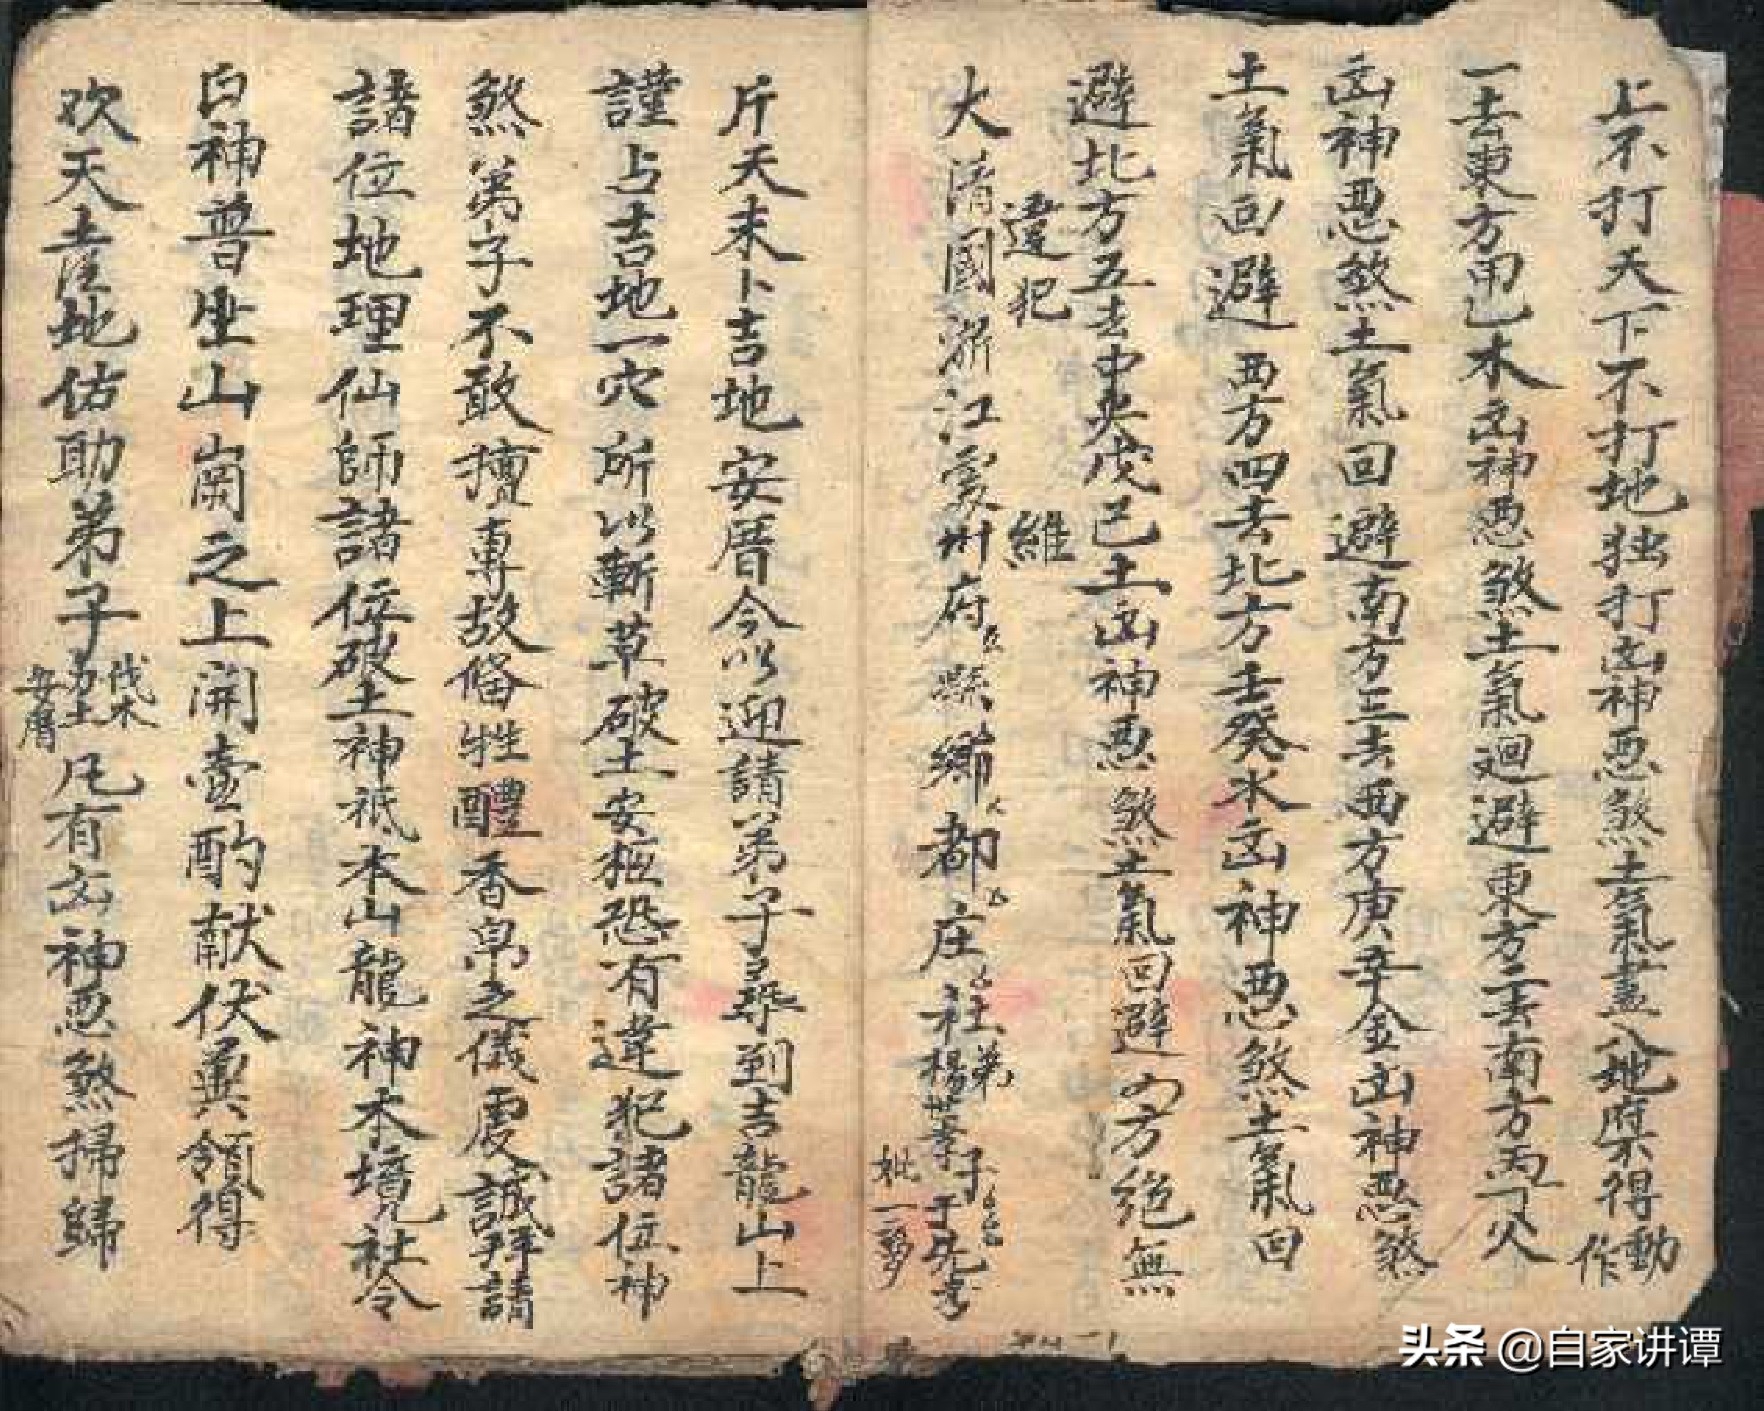 上不打天下不打地独打凶神恶煞土氣盡入地府得動作
一去東方甲乙木凶神恶煞土氣迴避東方二去南方丙丁火
凶神恶煞土氣回避南方三去西方庚辛金凶神恶煞
土氣回避西方四去北方壬癸水凶神恶煞土氣回
避北方五去中央戊己土凶神恶煞土氣回避四方絶無
違犯 維
大清國浙江處州府縣鄉都庄社弟子
楊
妣一
斤天未卜吉地安厝今以迎請弟子尋到吉龍山上
謹占吉地一穴所以斬草破土安柩恐有違犯諸位神
煞弟子不敢擅專故俻牲醴香帛之儀虔誠拜請
諸位地理仙師諸位破土神祇本山龍神本境社令
白神普坐山崗之上開壺酌献伏兾領得
欢天土地佑助弟子
伐木
動土
安厝
凡有凶神恶煞掃歸
头条 @自家讲谭